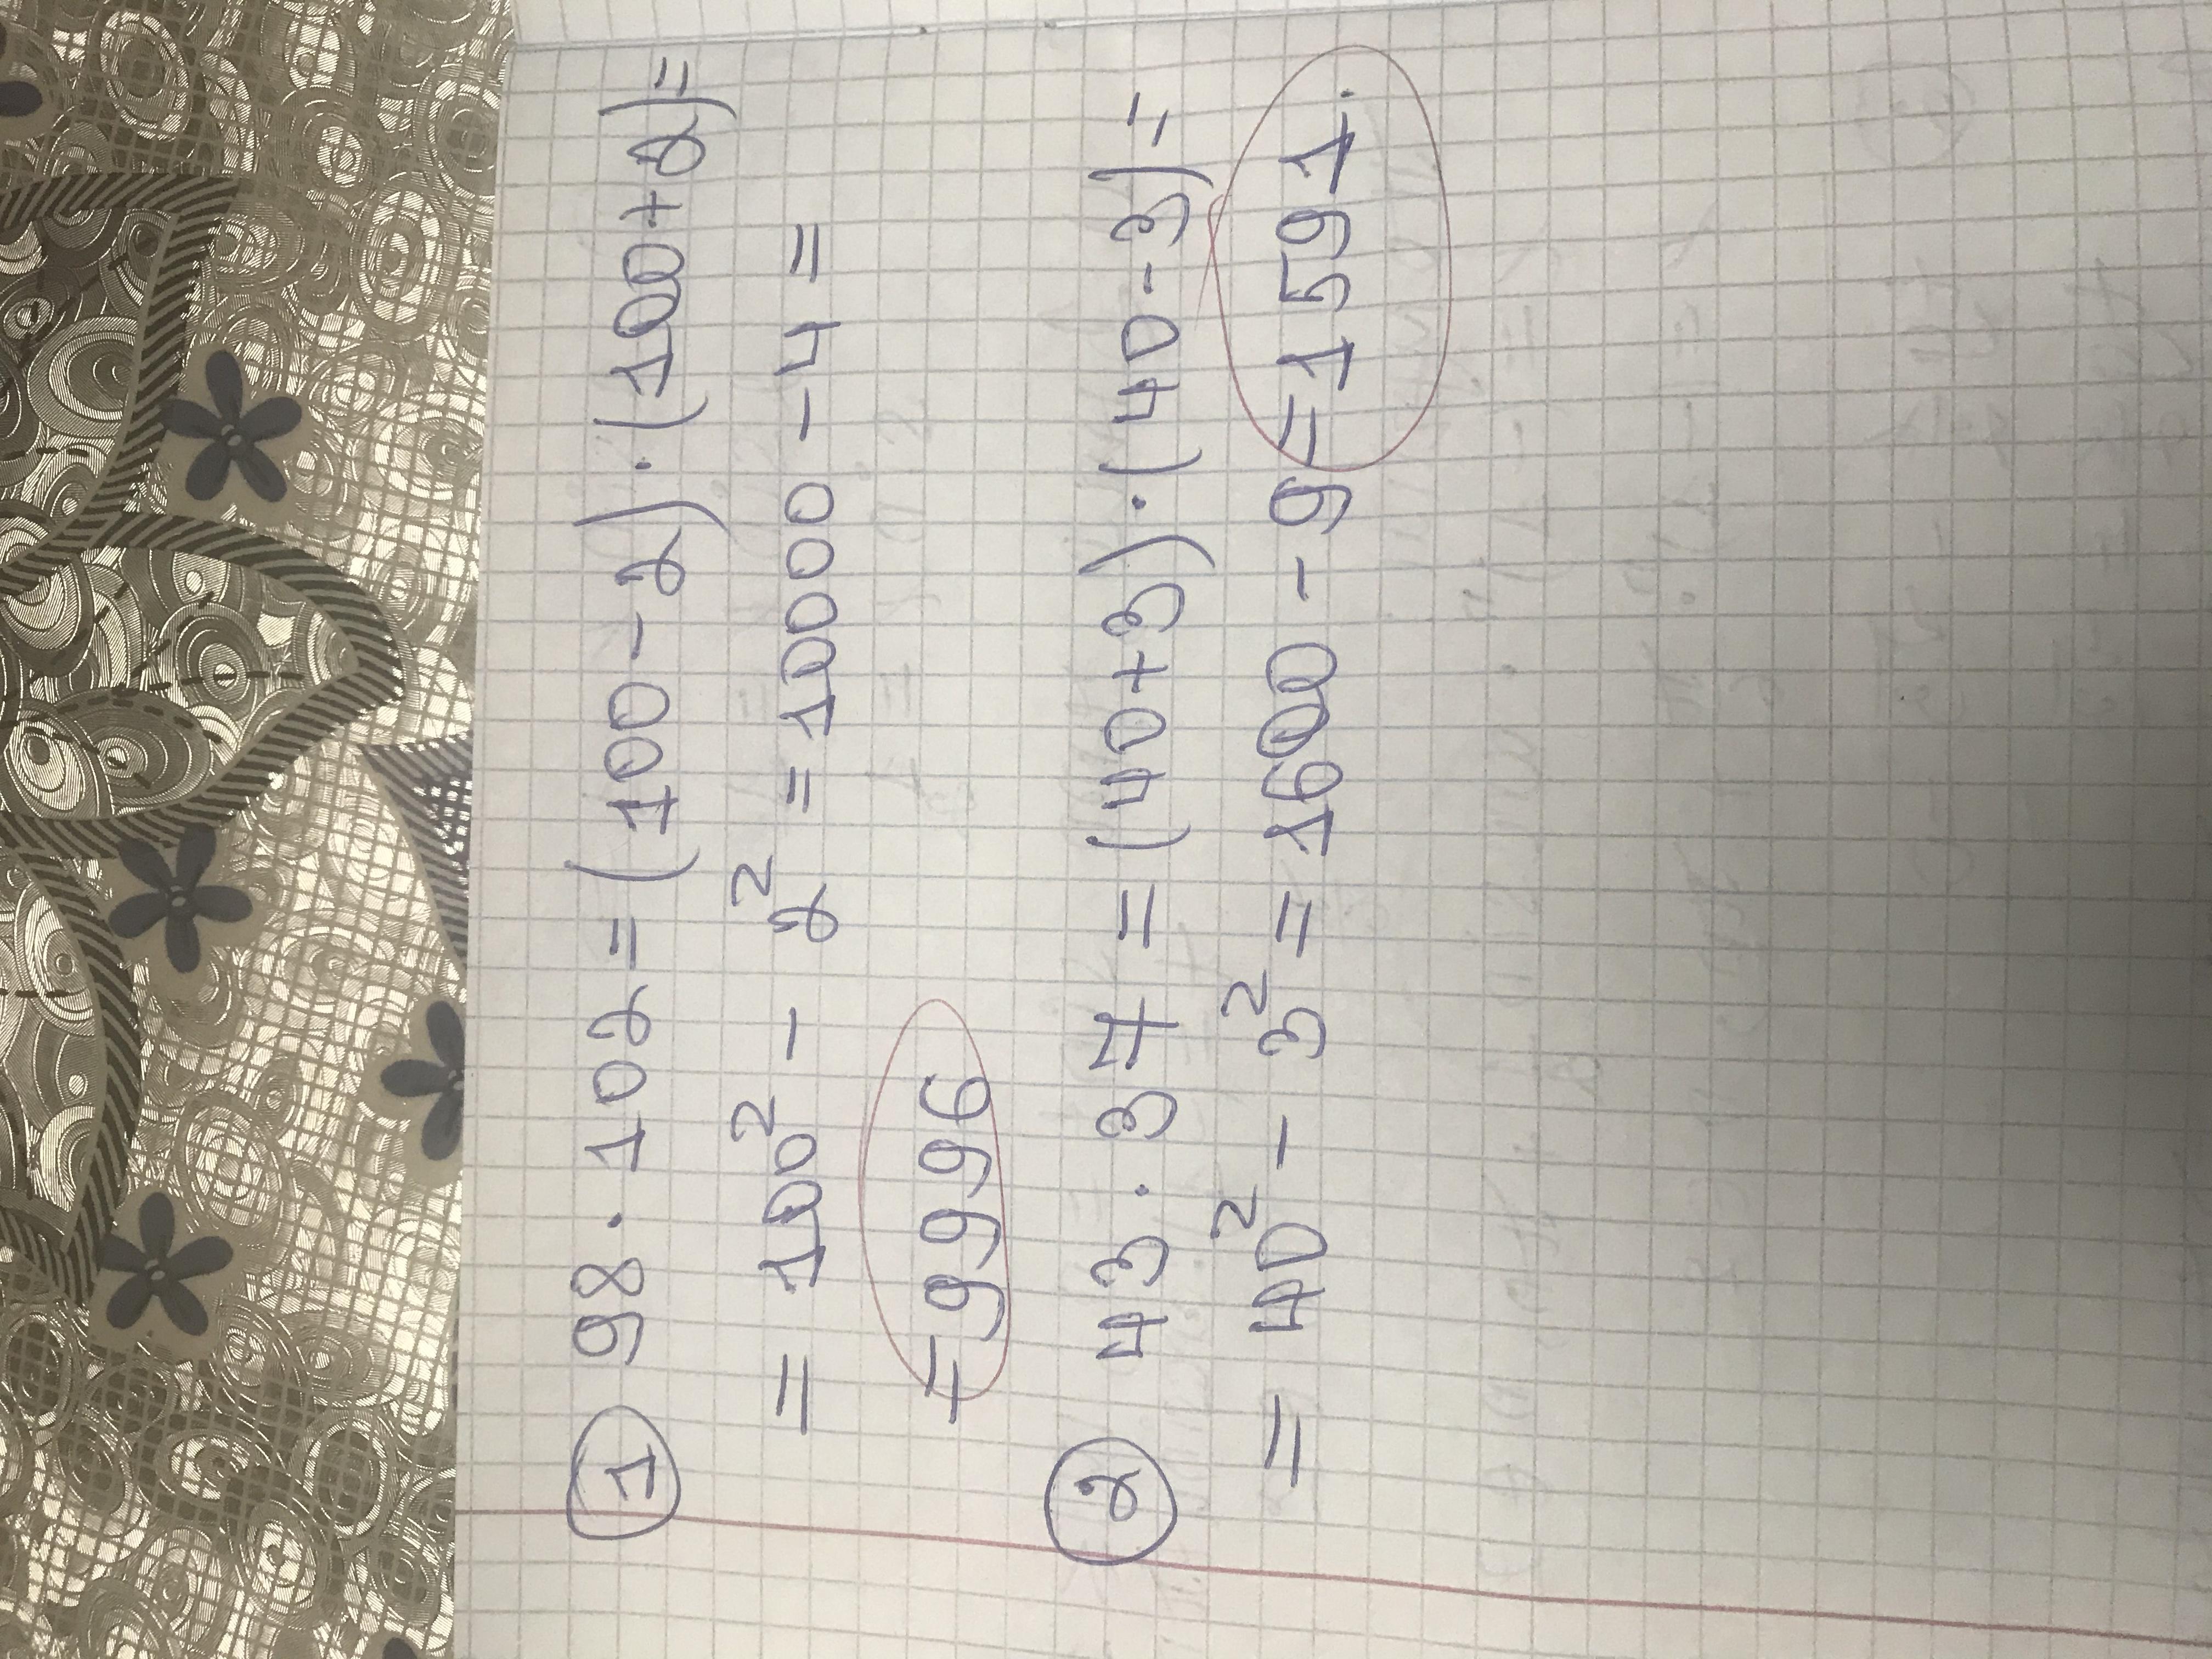 ① 98 · 102 = (100 - 2) · (100 + 2) =
= 100² - 2² = 10000 - 4 =
= 9996
② 43 · 37 = (40 + 3) · (40 - 3) =
= 40² - 3² = 1600 - 9 = 1591.